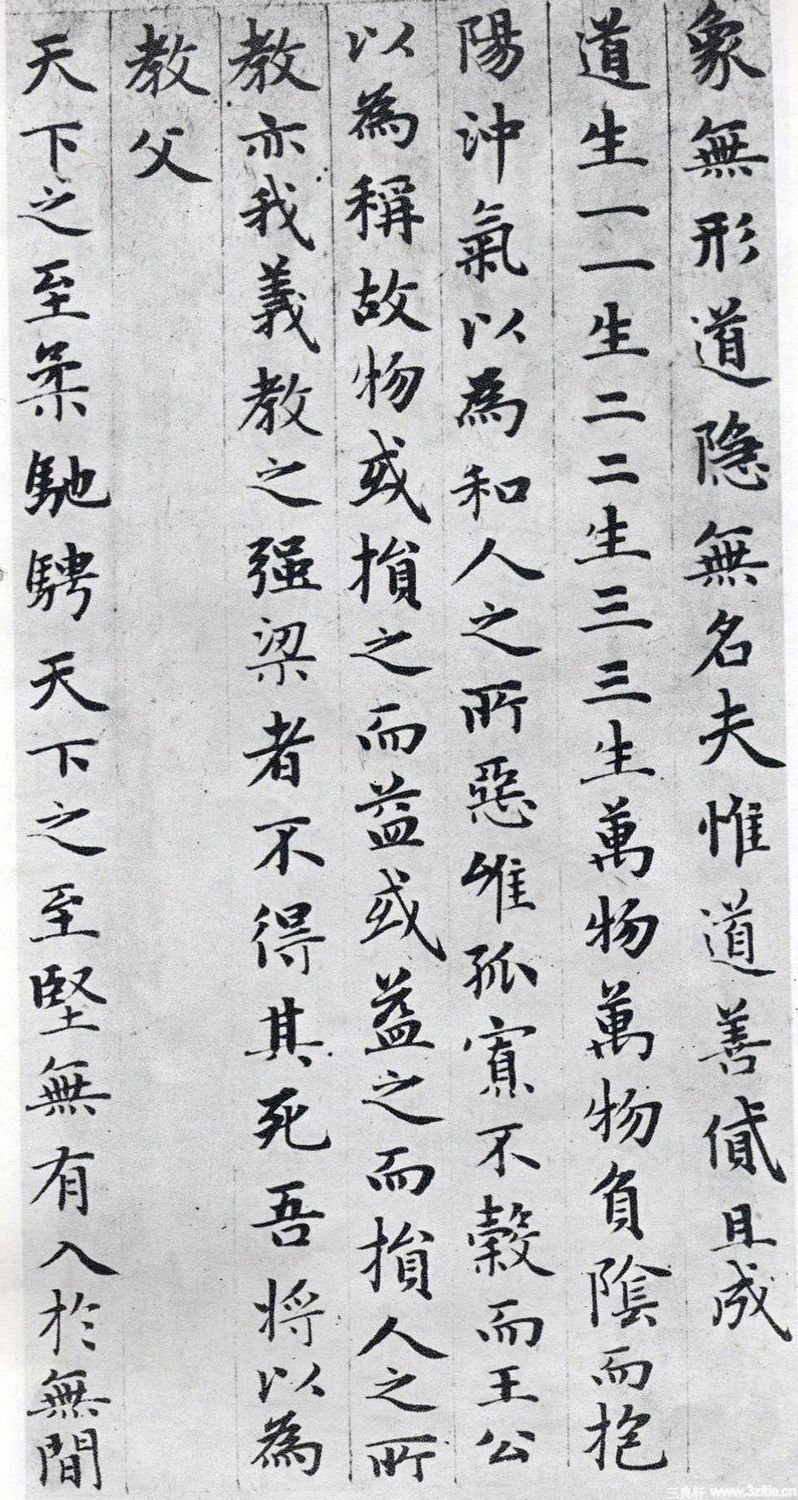 象無形道隐無名夫惟道善貸且成
道生一一生二二生三三生萬物萬物負陰而抱
陽沖氣以為和人之所惡唯孤寡不穀而王公
以為稱故物或損之而益或益之而損人之所
教亦我義教之强梁者不得其死吾将以為
教父
天下之至柔馳騁天下之至堅無有入於無間
三典轩 www.3zitie.cn